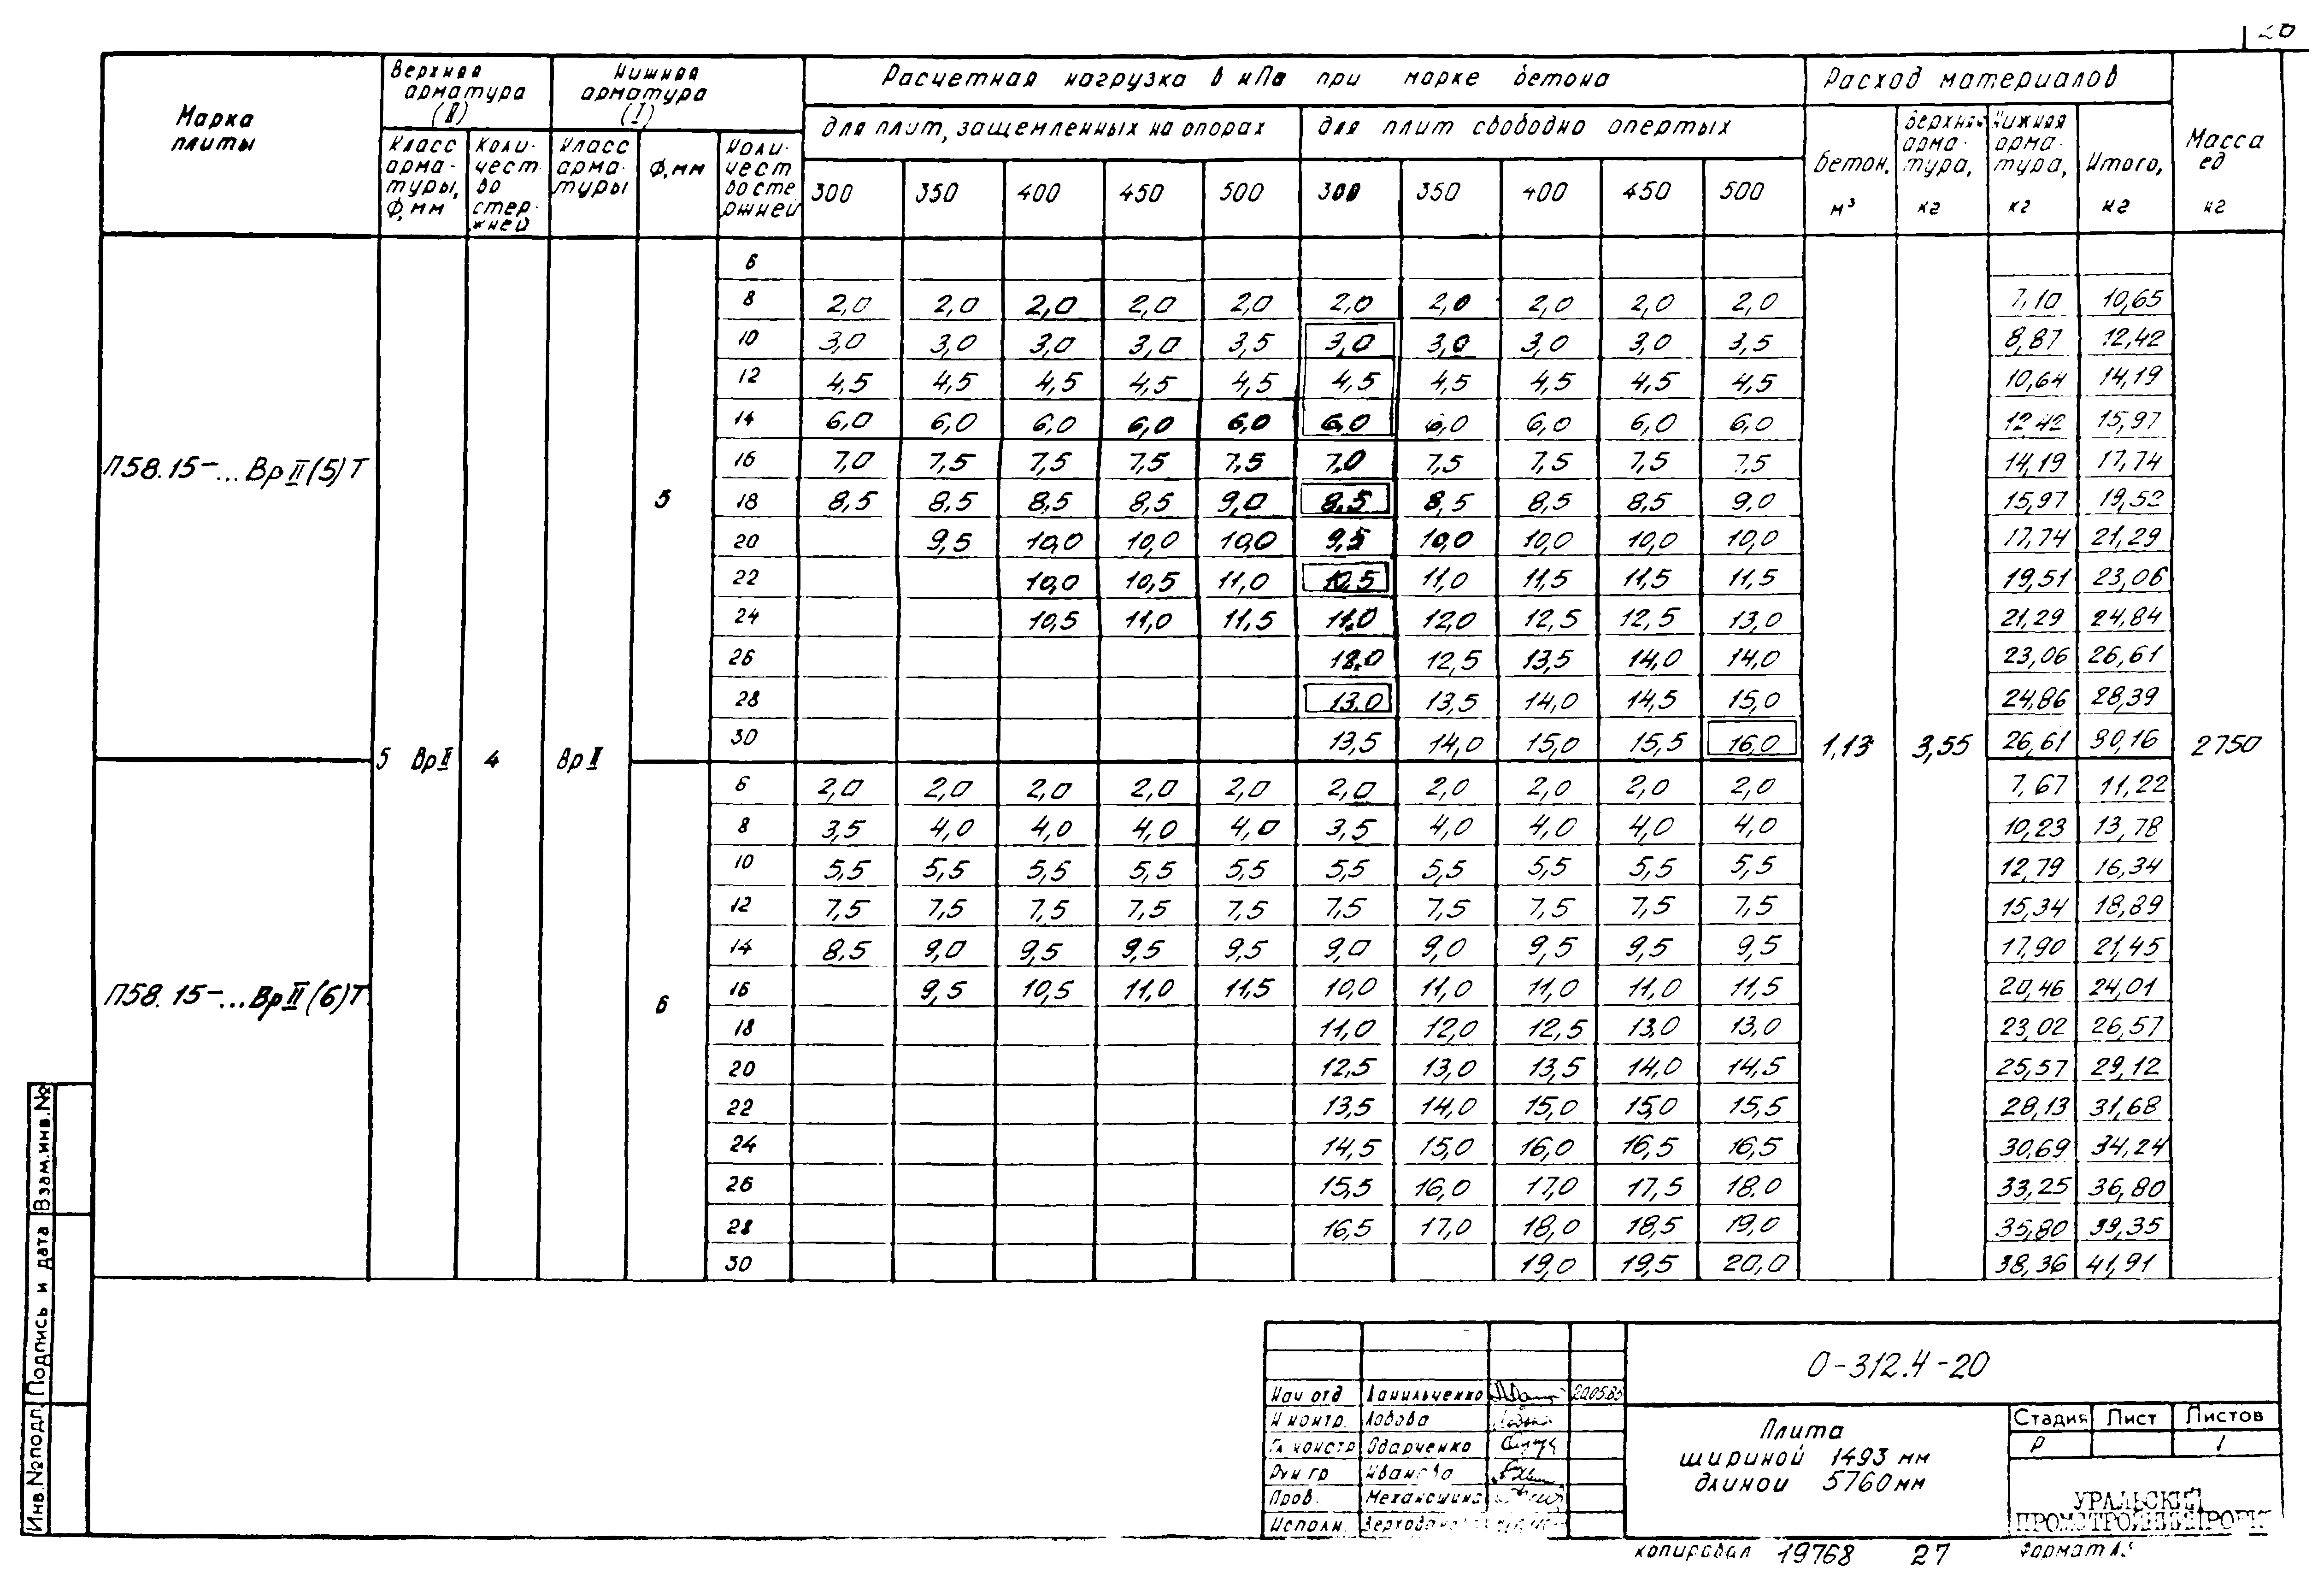 20
Марка плиты
Верхняя арматура (II)
Нижняя арматура (I)
Расчетная нагрузка в кПа при марке бетона
Расход материалов
Масса ед кг
для плит, защемленных на опорах
для плит свободно опертых
Класс арма-туры, Ф, мм
Коли-чест-во стер-жней
Класс арма-туры
Ф, мм
Коли-чест во сте ржней
300 350 400 450 500 300 350 400 450 500
Бетон, м³
Верхняя арма-тура, кг
Нижняя арма-тура, кг
Итого, кг
П58.15-...Вр II (5) Т
5 Вр II 4 Вр II
5
6
8 2,0 2,0 2,0 2,0 2,0 2,0 2,0 2,0 2,0 2,0 7,10 10,65
10 3,0 3,0 3,0 3,0 3,5 3,0 3,0 3,0 3,0 3,5 8,87 12,42
12 4,5 4,5 4,5 4,5 4,5 4,5 4,5 4,5 4,5 4,5 10,64 14,19
14 6,0 6,0 6,0 6,0 6,0 6,0 6,0 6,0 6,0 6,0 12,42 15,97
16 7,0 7,5 7,5 7,5 7,5 7,0 7,5 7,5 7,5 7,5 14,19 17,74
18 8,5 8,5 8,5 8,5 9,0 8,5 8,5 8,5 8,5 9,0 15,97 19,52
20 9,5 10,0 10,0 10,0 9,5 10,0 10,0 10,0 10,0 17,74 21,29
22 10,0 10,5 11,0 10,5 11,0 11,5 11,5 11,5 19,51 23,06
24 10,5 11,0 11,5 11,0 12,0 12,5 12,5 13,0 21,29 24,84
26 12,5 13,5 14,0 14,0 23,06 26,61
28 13,0 13,5 14,0 14,5 15,0 24,86 28,39
30 13,5 14,0 15,0 15,5 16,0 26,61 30,16
1,13 3,55 2750
П58.15-...Вр II (6) Т
6
6 2,0 2,0 2,0 2,0 2,0 2,0 2,0 2,0 2,0 2,0 7,67 11,22
8 3,5 4,0 4,0 4,0 4,0 3,5 4,0 4,0 4,0 4,0 10,23 13,78
10 5,5 5,5 5,5 5,5 5,5 5,5 5,5 5,5 5,5 5,5 12,79 16,34
12 7,5 7,5 7,5 7,5 7,5 7,5 7,5 7,5 7,5 7,5 15,34 18,89
14 8,5 9,0 9,5 9,5 9,5 9,0 9,0 9,5 9,5 9,5 17,90 21,45
16 9,5 10,5 11,0 11,5 10,0 11,0 11,0 11,0 11,5 20,46 24,01
18 11,0 12,0 12,5 13,0 13,0 23,02 26,57
20 12,5 13,0 13,5 14,0 14,5 25,57 29,12
22 13,5 14,0 15,0 15,0 15,5 28,13 31,68
24 14,5 15,0 16,0 16,5 16,5 30,69 34,24
26 15,5 16,0 17,0 17,5 18,0 33,25 36,80
28 16,5 17,0 18,0 18,5 19,0 35,80 39,35
30 19,0 19,5 20,0 38,36 41,91
Взам.инв.№
Подпись и дата
Инв.№подл
Нач отд Данильченко 20.05.83
Н контр. Лобова
Гл констр Одарченко
Рук гр Иванова
Пров. Механошина
Исполн.
О-312.4-20
Плита
шириной 1493 мм
длиной 5760 мм
Стадия Лист Листов
Р 1
УРАЛЬСКИЙ
ПРОМСТРОЙНИИПРОЕКТ
копировал 19768 27 Формат А3